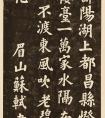 陽湖上都昌縣燈
樓臺一萬家水隔
不渡東風吹老碧
眉山蘇軾